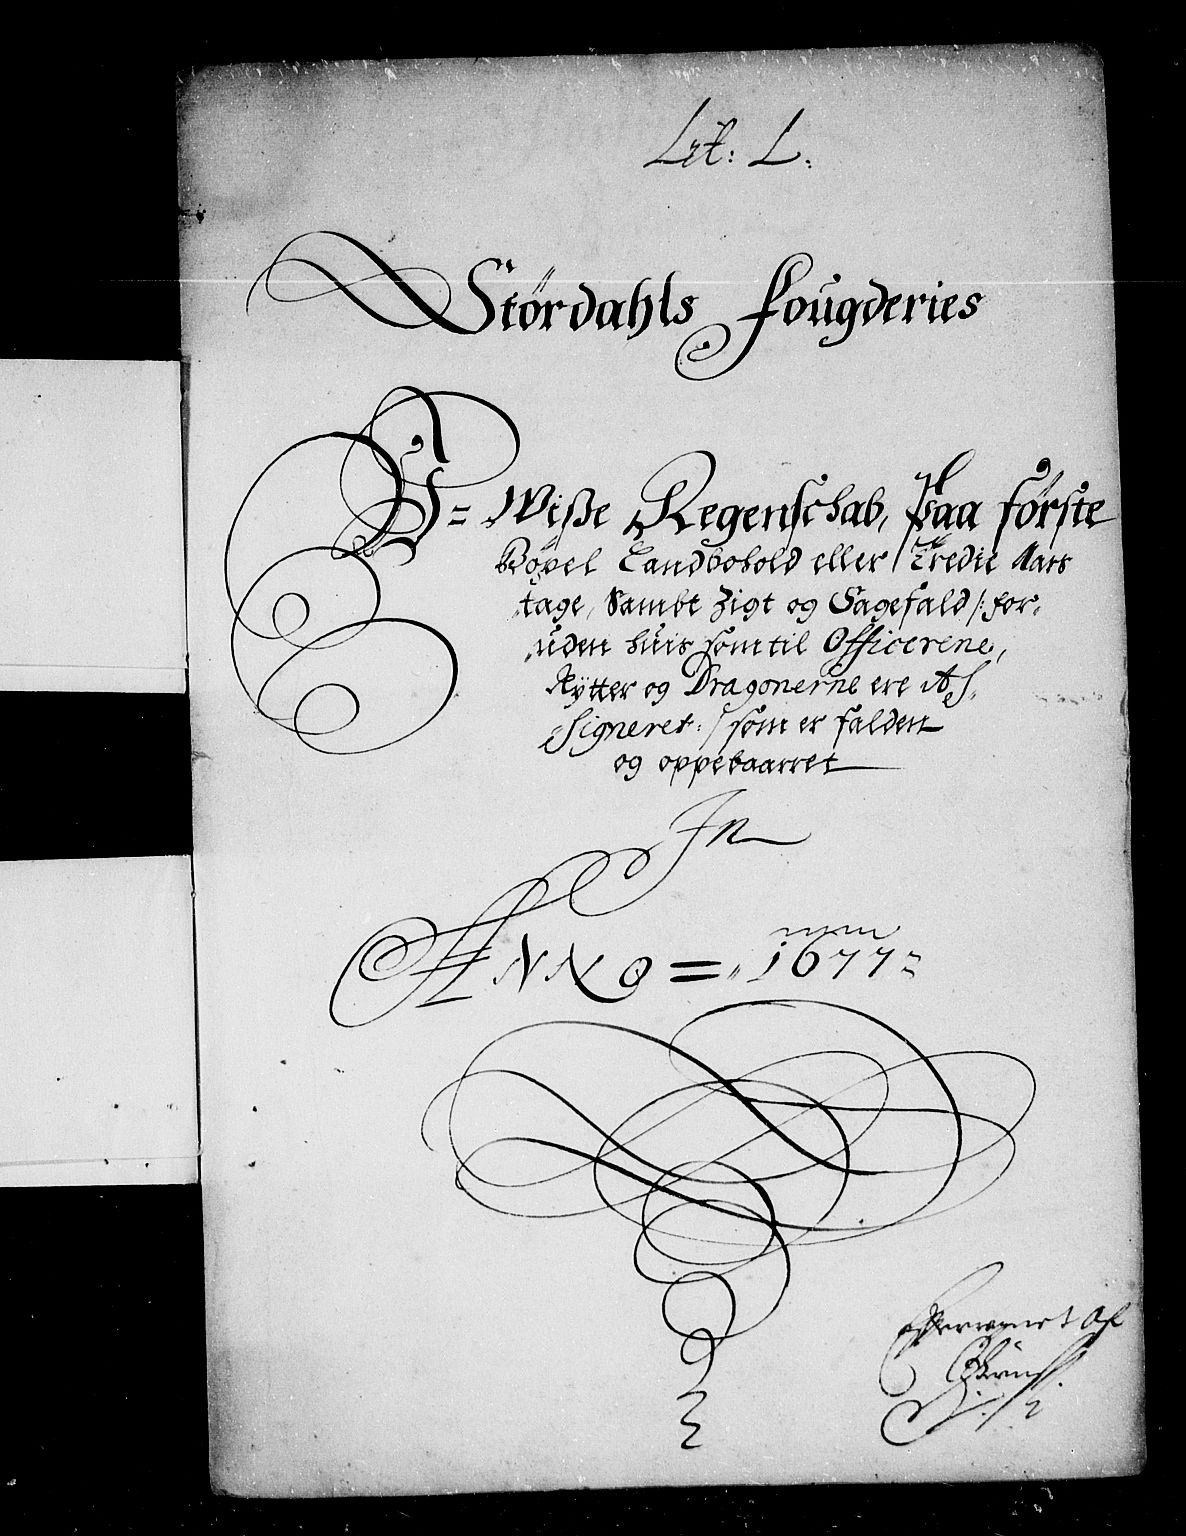 Lit: L.
Stördahls Fougderies
U= Wiße Regenschab, Paa förste
Böxel Landbohold eller Tredie Aars
tage, Sambt Zigt og Sagefald /: for,
uden huis som til Officerene,
Rÿtter og Dragonerne ere As,
signeret: / som er falden
og oppebaarret
In
ANNO = 1677